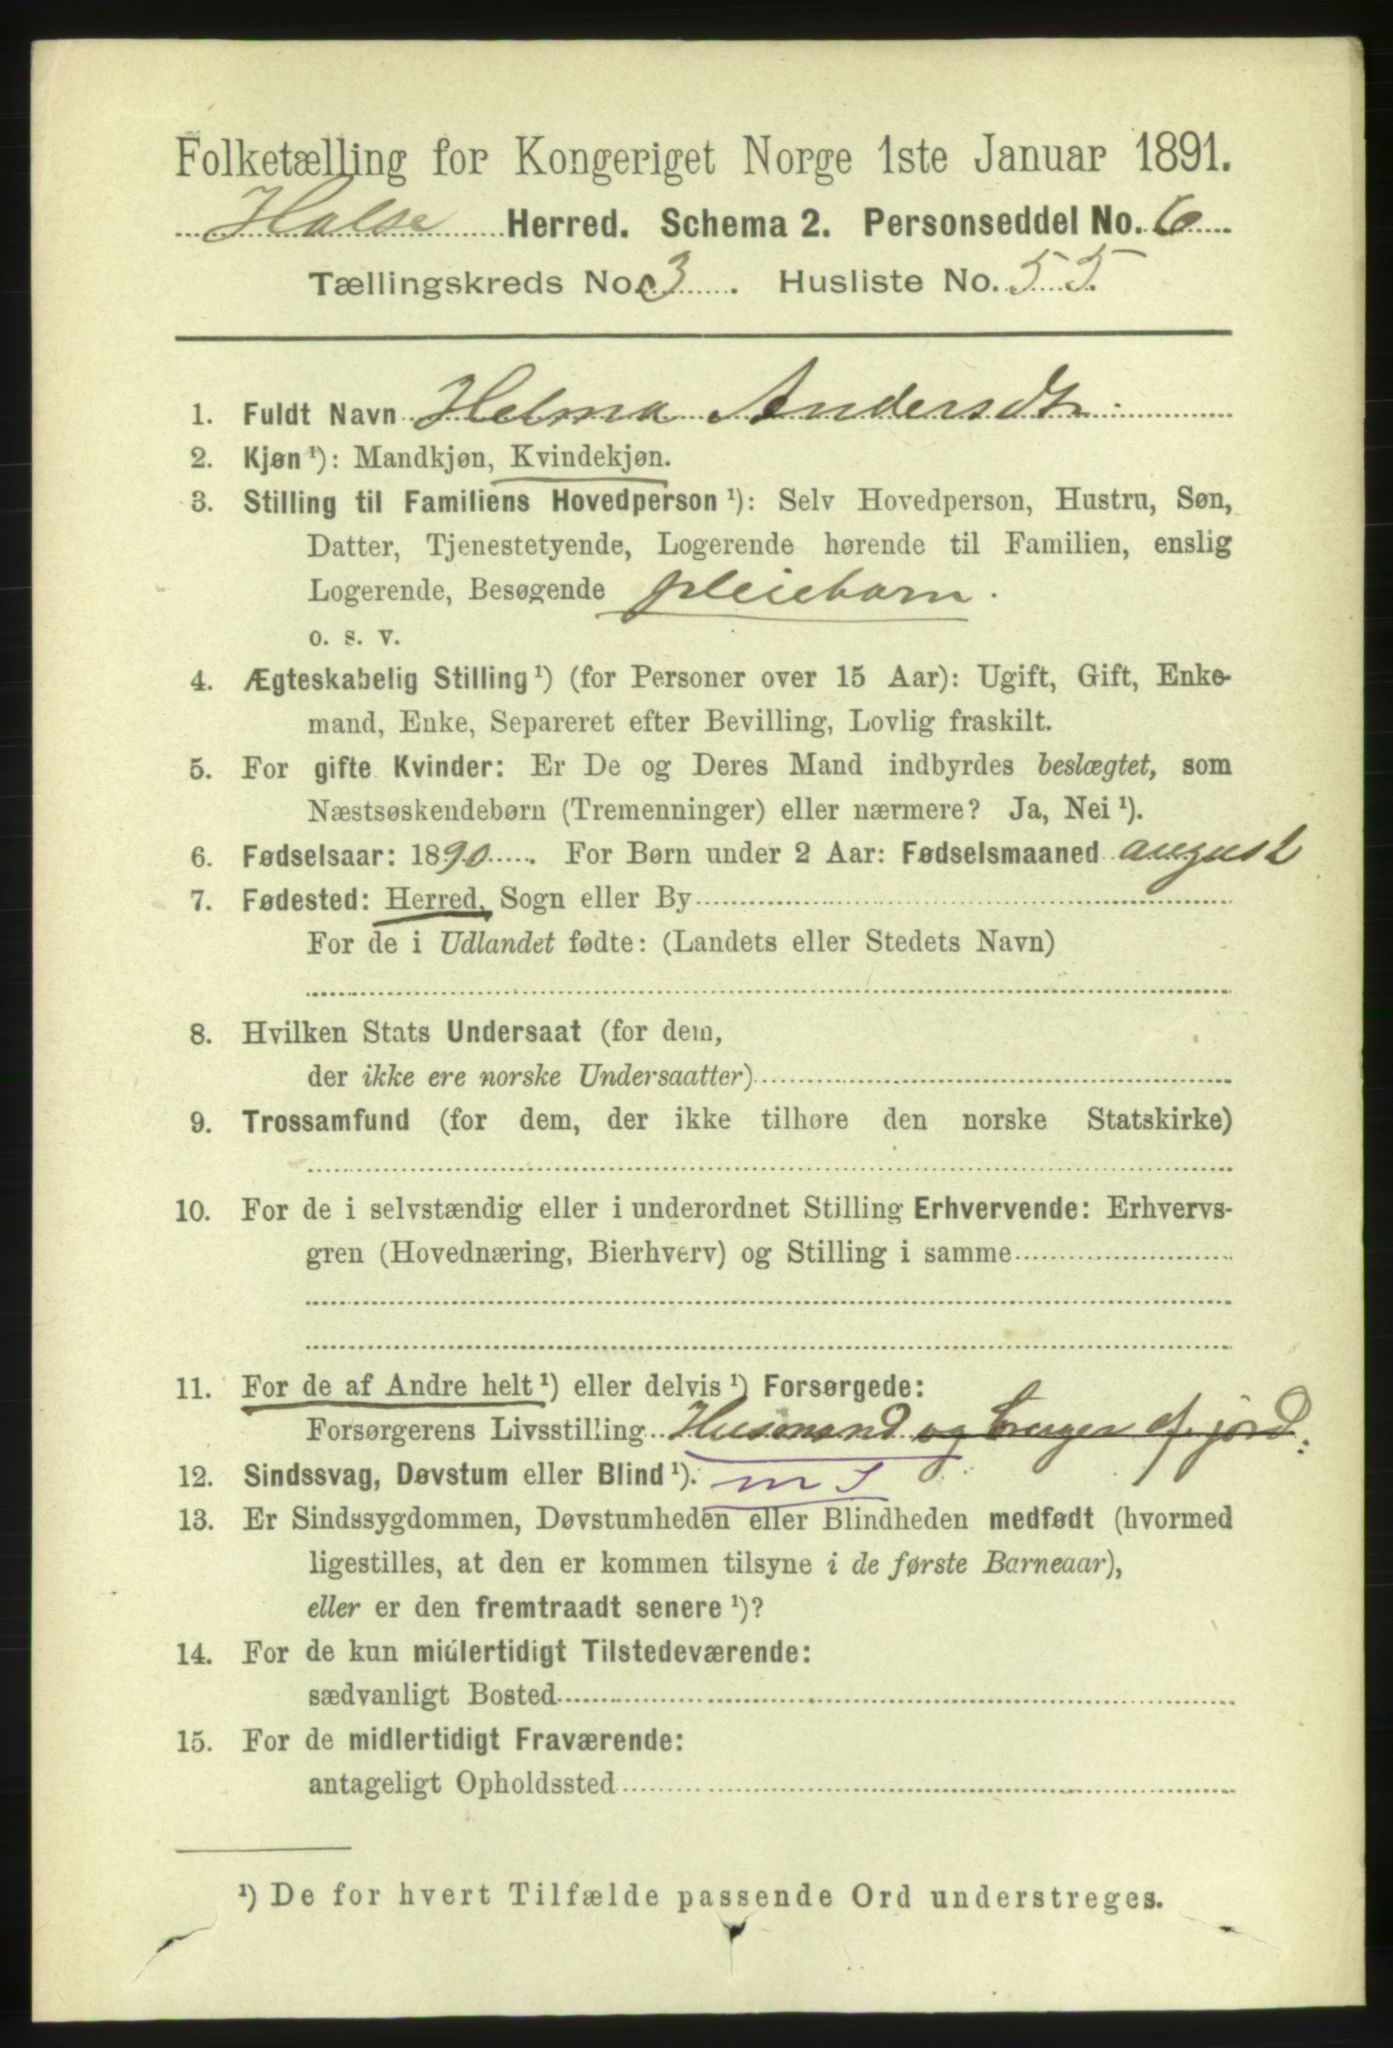 Folketælling for Kongeriget Norge 1ste Januar 1891.
Halse Herred. Schema 2. Personseddel No. 6
Tællingskreds No. 3. Husliste No. 55
1. Fuldt Navn Helma Andersdtr
2. Kjøn ¹): Mandkjøn, Kvindekjøn.
3. Stilling til Familiens Hovedperson ¹): Selv Hovedperson, Hustru, Søn,
Datter, Tjenestetyende, Logerende hørende til Familien, enslig
Logerende, Besøgende pleiebarn.
o. s. v.
4. Ægteskabelig Stilling ¹) (for Personer over 15 Aar): Ugift, Gift, Enke-
mand, Enke, Separeret efter Bevilling, Lovlig fraskilt.
5. For gifte Kvinder: Er De og Deres Mand indbyrdes beslægtet, som
Næstsøskendebørn (Tremenninger) eller nærmere? Ja, Nei ¹).
6. Fødselsaar: 1890. For Børn under 2 Aar: Fødselsmaaned august
7. Fødested: Herred, Sogn eller By
For de i Udlandet fødte: (Landets eller Stedets Navn)
8. Hvilken Stats Undersaat (for dem,
der ikke ere norske Undersaatter)
9. Trossamfund (for dem, der ikke tilhøre den norske Statskirke)
10. For de i selvstændig eller i underordnet Stilling Erhvervende: Erhvervs-
gren (Hovednæring, Bierhverv) og Stilling i samme
11. For de af Andre helt ¹) eller delvis ¹) Forsørgede:
Forsørgerens Livsstilling Husmand og bruger af jord.
12. Sindssvag, Døvstum eller Blind ¹). m J
13. Er Sindssygdommen, Døvstumheden eller Blindheden medfødt (hvormed
ligestilles, at den er kommen tilsyne i de første Barneaar),
eller er den fremtraadt senere ¹)?
14. For de kun midlertidigt Tilstedeværende:
sædvanligt Bosted
15. For de midlertidigt Fraværende:
antageligt Opholdssted
¹) De for hvert Tilfælde passende Ord understreges.